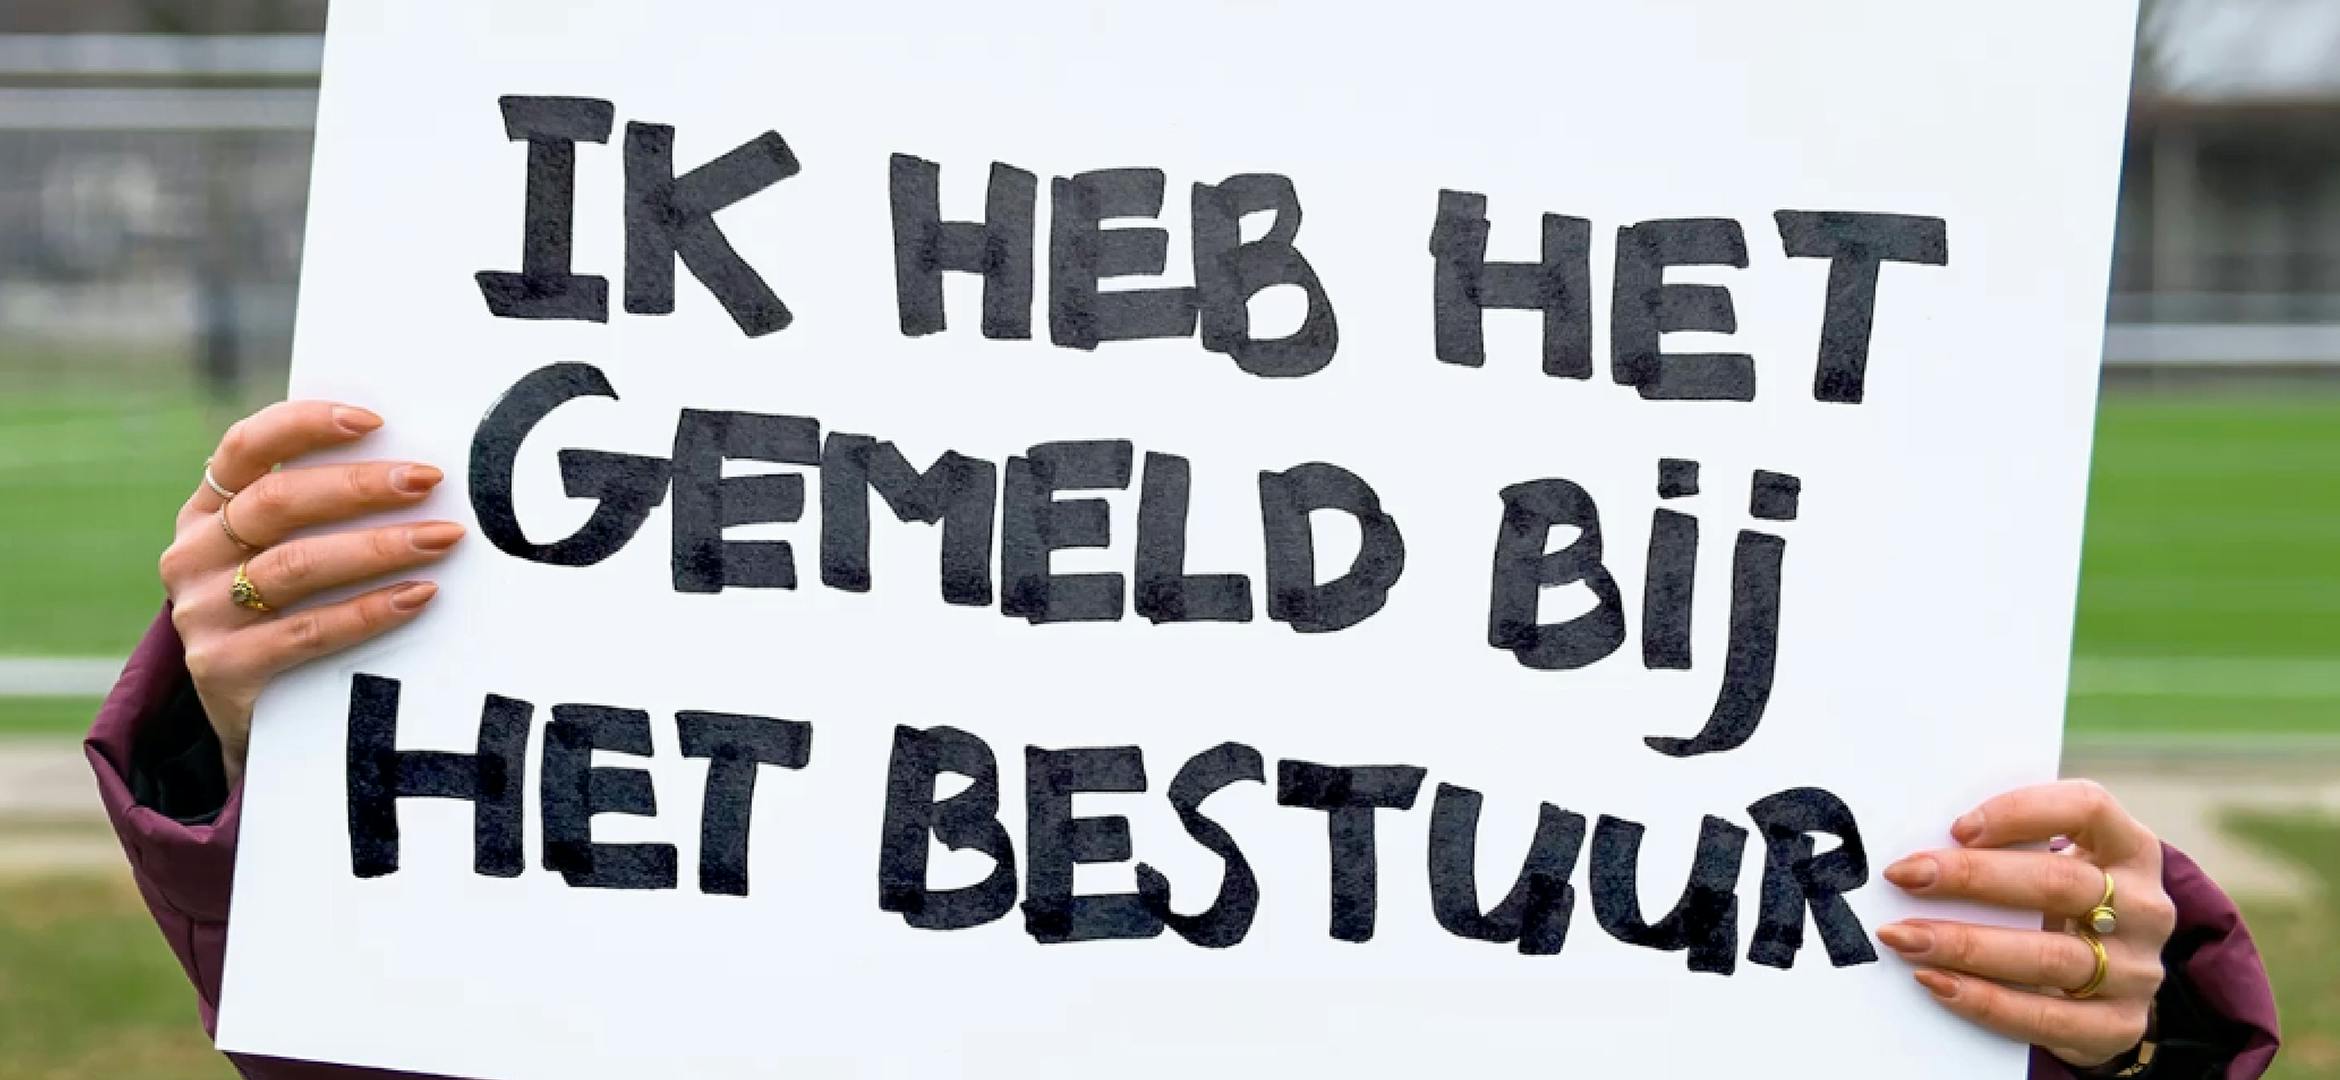 IK HEB HET
GEMELD Bij
HET BESTUUR